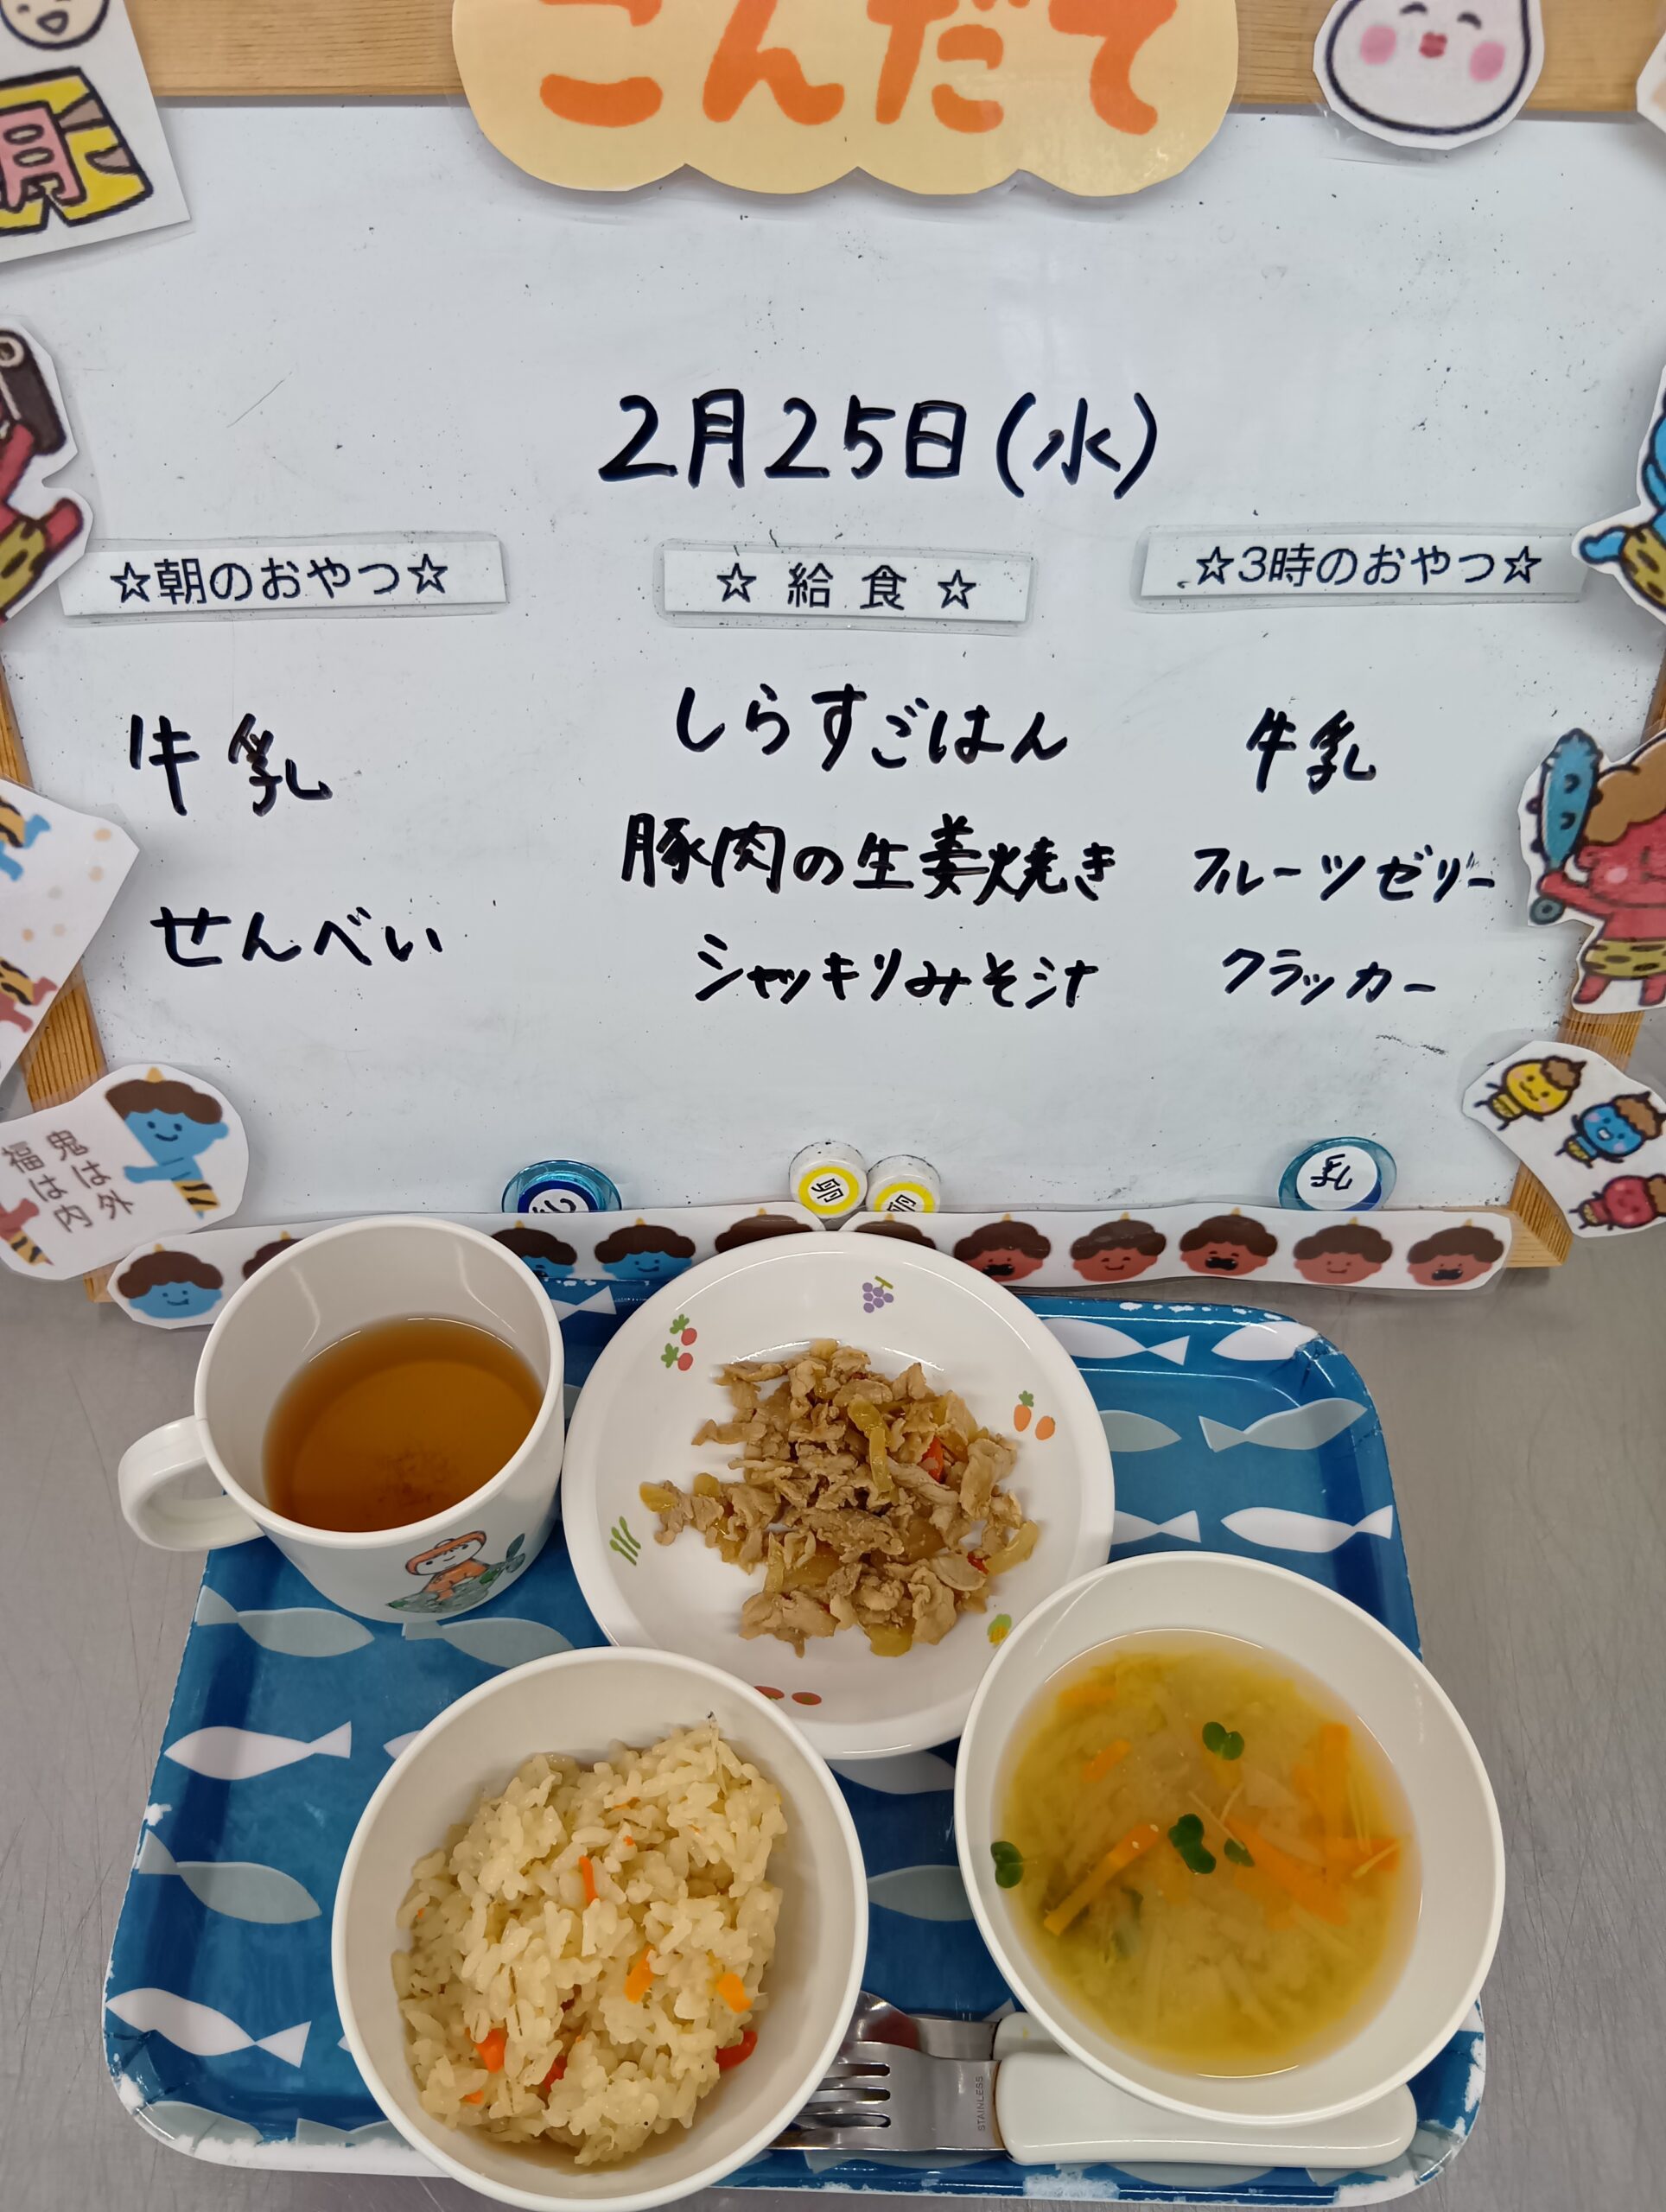 こんだて
2月25日(水)
☆朝のおやつ☆
牛乳
せんべい
☆ 給 食 ☆
しらすごはん
豚肉の生姜焼き
シャッキリみそ汁
☆3時のおやつ☆
牛乳
フルーツゼリー
クラッカー
鬼は外
福は内
卵
卵
乳
STAINLESS